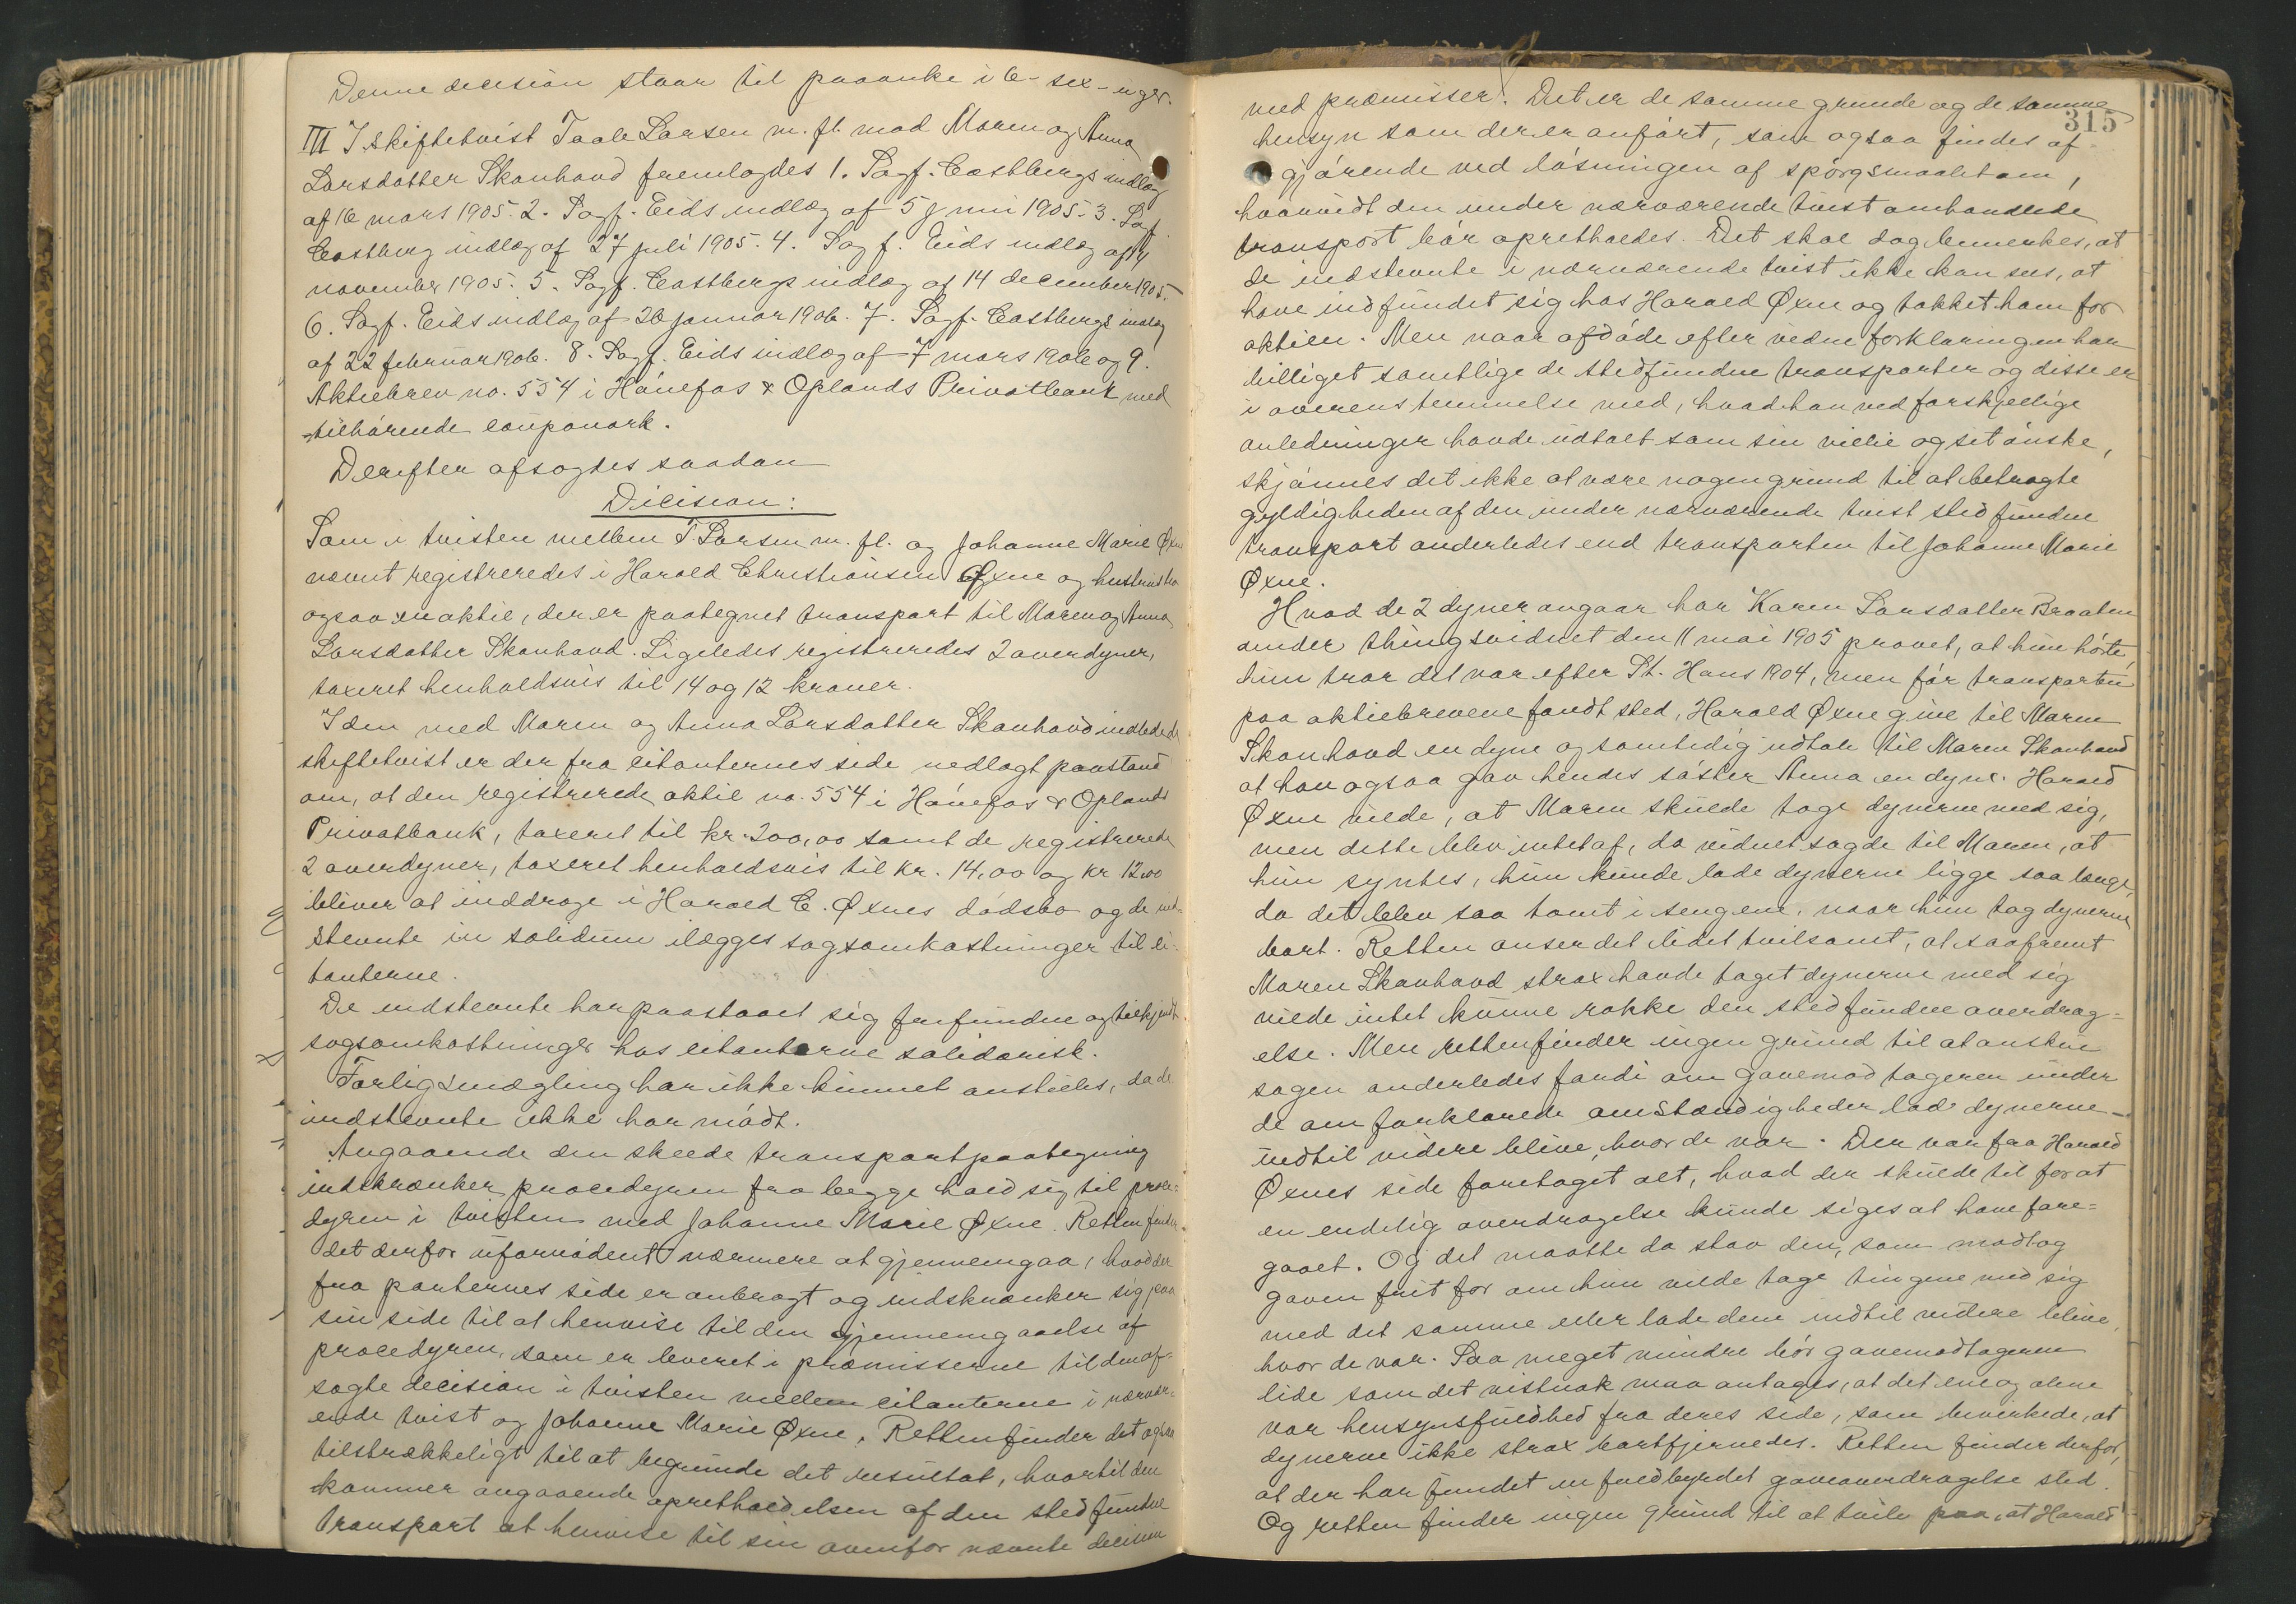 Denne decision staar til paaanke i 6 - sex - uger.
III I skiftetvist Taale Larsen m. fl. mod Maren og Anna
Larsdatter Skanhaud fremlagdes 1. Sagf. Castbergs indlæg
af 16 mars 1905. 2. Sagf. Eids indlæg af 5 juni 1905. 3. Sagf.
Castberg indlæg af 27 juli 1905. 4. Sagf. Eids indlæg af
november 1905. 5. Sagf. Castbergs indlæg af 14 december 1905.
6. Sagf. Eids indlæg af 26 januar 1906. 7. Sagf. Castbergs indlæg
af 22 februar 1906. 8. Sagf. Eids indlæg af 7 mars 1906 og 9.
Aktiebrev no. 554 i Hónefos & Oplands Privatbank med
tilhórende couponark.
Derefter afsagdes saadan
Dicision:
Som i tvisten mellem T. Larsen m. fl. og Johanne Marie Øxne
nævnt registreredes i Harald Christiansen Øxne og hustrus bo
ogsaa en aktie, der er paategnet transport til Maren og Anna
Larsdatter Skanhaud. Ligeledes registreredes 2 overdyner,
taxeret henholdsvis til 14 og 12 kroner.
I den med Maren og Anna Larsdatter Skanhaud indledede
skiftetvist er der fra citanternes side nedlagt paastand
om, at den registrerede aktie no. 554 i Hónefos & Oplands
Privatbank, taxeret til kr. 200,00 samt de registrerede
2 overdyner, taxeret henholdsvis til kr. 14,00 og kr 12,00
bliver at inddrage i Harald C. Øxnes dódsbo og de ind-
stevnte in solidum ilægges sagsomkostninger til ci-
tanterne.
De indstevnte har paastaaet sig frifundne og tilkjendt
sagsomkostninger hos citanterne solidarisk.
Forligsmægling har ikke kunnet anstilles, da de
indstevnte ikke har mödt.
Angaaende den skeede transportpaategning
indskrænker proceduren fra begge hold sig til proce-
dyren i tvisten med Johanne Marie Øxne. Retten finder
det derfor ufornódent nærmere at gjennemgaa, hvad der
fra parternes side er anbragt og indskrænker sig paa
sin side til at henvise til den gjennemgaaelse af
procedyren, som er leveret i præmisserne til den af-
sagte decision i tvisten mellem citanterne i nærvær-
ende tvist og Johanne Marie Øxne. Retten finder det ogsaa
tilstrækkeligt til at begrunde det resultat, hvortil den
kommer angaaende opretholdelsen af den stedfundne
transport at henvise til sin ovenfor nævnte decision
315
med præmisser. Det er de samme grunde og de samme
hensyn som der er anfórt, som ogsaa findes af-
gjórende ved lósningen af spórgsmaalet om,
hvorvidt den under nærværende tvist omhandlede
transport bór opretholdes. Det skal dog bemerkes, at
de indstevnte i nærværende tvist ikke kan sees, at
have indfundet sig hos Harald Øxne og takket ham for
aktien. Men naar afdóde efter vidneforklaringen har
billiget samtlige de stedfundne transporter og disse er
i overensstemmelse med, hvad han ved forskjellige
anledninger havde udtalt som sin villie og sit ónske,
skjónnes det ikke at være nogen grund til at betragte
gyldigheden af den under nærværende tvist stedfundne
transport anderledes end transporten til Johanne Marie
Øxne.
Hvad de 2 dyner angaar har Karen Larsdatter Braaten
under thingsvidnet den 11 mai 1905 provet, at hun hórte,
hun tror det var efter St. Hans 1904, men fór transporten
paa aktiebrevene fandt sted, Harald Øxne give til Maren
Skanhaud en dyne og samtidig udtale til Maren Skanhaud
at han ogsaa gav hendes sóster Anna en dyne. Harald
Øxne vilde, at Maren skulde tage dynerne med sig,
men dette blev intet af, da vidnet sagde til Maren, at
hun syntes, hun kunde lade dynerne ligge saa længe,
da det blev saa tomt i sengene, naar hun tog dynerne
bort. Retten anser det lidet tvilsomt, at saafremt
Maren Skanhaud strax havde taget dynerne med sig
vilde intet kunne rokke den stedfundne overdrag-
else. Men retten finder ingen grund til at ansee
sagen anderledes fordi om gavemodtageren under
de om forklarede omstændigheder lod dynerne
indtil videre blive, hvor de var. Der var fra Harald
Øxnes side foretaget alt, hvad der skulde til for at
en endelig overdragelse kunde siges at have fore-
gaaet. Og det maatte da staa den, som modtog
gaven frit for om hun vilde tage tingene med sig
med det samme eller lade dem indtil videre blive,
hvor de var. Saa meget mindre bór gavemodtageren
lide som det vistnok maa antages, at det ene og alene
var hensynsfuldhed fra deres side, som bevirkede, at
dynerne ikke strax bortfjernedes. Retten finder derfor,
at der har fundet en fuldbyrdet gaveoverdragelse sted.
Og retten finder ingen grund til at tvile paa, at Harald